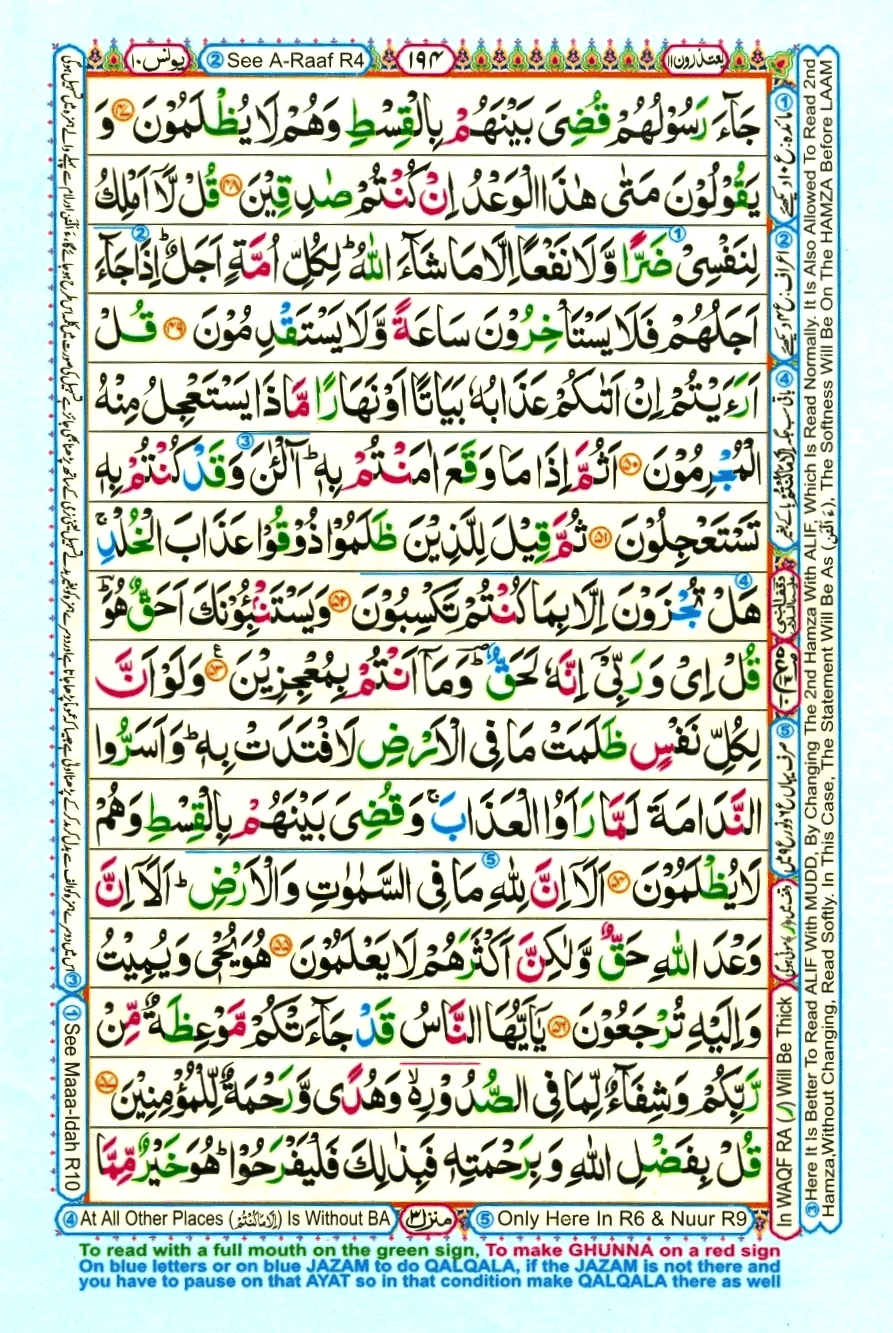 یونس ۱۰
② See A-Raaf R4
۱۹۴
یعتذرون ۱۱
جَآءَ رَسُوْلُهُمْ قُضِیَ بَیْنَهُمْ بِالْقِسْطِ وَهُمْ لَا یُظْلَمُوْنَ ﴿۴۷﴾ وَ
یَقُوْلُوْنَ مَتٰی هٰذَا الْوَعْدُ اِنْ كُنْتُمْ صٰدِقِیْنَ ﴿۴۸﴾ قُلْ لَّاۤ اَمْلِكُ
لِنَفْسِیْ ضَرًّا وَّلَا نَفْعًا اِلَّا مَا شَآءَ اللّٰهُ ؕ لِكُلِّ اُمَّةٍ اَجَلٌ ؕ اِذَا جَآءَ
اَجَلُهُمْ فَلَا یَسْتَاْخِرُوْنَ سَاعَةً وَّلَا یَسْتَقْدِمُوْنَ ﴿۴۹﴾ قُلْ
اَرَءَیْتُمْ اِنْ اَتٰىكُمْ عَذَابُهٗ بَیَاتًا اَوْ نَهَارًا مَّا ذَا یَسْتَعْجِلُ مِنْهُ
الْمُجْرِمُوْنَ ﴿۵۰﴾ اَثُمَّ اِذَا مَا وَقَعَ اٰمَنْتُمْ بِهٖ ؕ آٰلْـٰٔنَ وَقَدْ كُنْتُمْ بِهٖ
تَسْتَعْجِلُوْنَ ﴿۵۱﴾ ثُمَّ قِیْلَ لِلَّذِیْنَ ظَلَمُوْا ذُوْقُوْا عَذَابَ الْخُلْدِ ۚ
هَلْ تُجْزَوْنَ اِلَّا بِمَا كُنْتُمْ تَكْسِبُوْنَ ﴿۵۲﴾ وَیَسْتَنْۢبِـُٔوْنَكَ اَحَقٌّ هُوَ ؕ
قُلْ اِیْ وَرَبِّیْۤ اِنَّهٗ لَحَقٌّ ؔؕ وَمَاۤ اَنْتُمْ بِمُعْجِزِیْنَ ﴿۵۳﴾ وَلَوْ اَنَّ
لِكُلِّ نَفْسٍ ظَلَمَتْ مَا فِی الْاَرْضِ لَافْتَدَتْ بِهٖ ؕ وَاَسَرُّوا
النَّدَامَةَ لَمَّا رَاَوُا الْعَذَابَ ۚ وَقُضِیَ بَیْنَهُمْ بِالْقِسْطِ وَهُمْ
لَا یُظْلَمُوْنَ ﴿۵۴﴾ اَلَاۤ اِنَّ لِلّٰهِ مَا فِی السَّمٰوٰتِ وَالْاَرْضِ ؕ اَلَاۤ اِنَّ
وَعْدَ اللّٰهِ حَقٌّ وَّلٰكِنَّ اَكْثَرَهُمْ لَا یَعْلَمُوْنَ ﴿۵۵﴾ هُوَ یُحْیٖ وَیُمِیْتُ
وَاِلَیْهِ تُرْجَعُوْنَ ﴿۵۶﴾ یٰۤاَیُّهَا النَّاسُ قَدْ جَآءَتْكُمْ مَّوْعِظَةٌ مِّنْ
رَّبِّكُمْ وَشِفَآءٌ لِّمَا فِی الصُّدُوْرِ ۙ وَهُدًی وَّرَحْمَةٌ لِّلْمُؤْمِنِیْنَ ﴿۵۷﴾
قُلْ بِفَضْلِ اللّٰهِ وَبِرَحْمَتِهٖ فَبِذٰلِكَ فَلْیَفْرَحُوْا ؕ هُوَ خَیْرٌ مِّمَّا
① See Maaa-Idah R10
In WAQF RA (ر) Will Be Thick
③ Here It Is Better To Read ALIF With MUDD, By Changing The 2nd Hamza With ALIF, Which Is Read Normally. It Is Also Allowed To Read 2nd
Hamza,Without Changing, Read Softly. In This Case, The Statement Will Be As (ءَاَلْـٰٔنَ), The Softness Will Be On The HAMZA Before LAAM
④ At All Other Places (اِلَّا مَا كُنْتُمْ) Is Without BA
منزل ۳
⑤ Only Here In R6 & Nuur R9
To read with a full mouth on the green sign, To make GHUNNA on a red sign
On blue letters or on blue JAZAM to do QALQALA, if the JAZAM is not there and
you have to pause on that AYAT so in that condition make QALQALA there as well